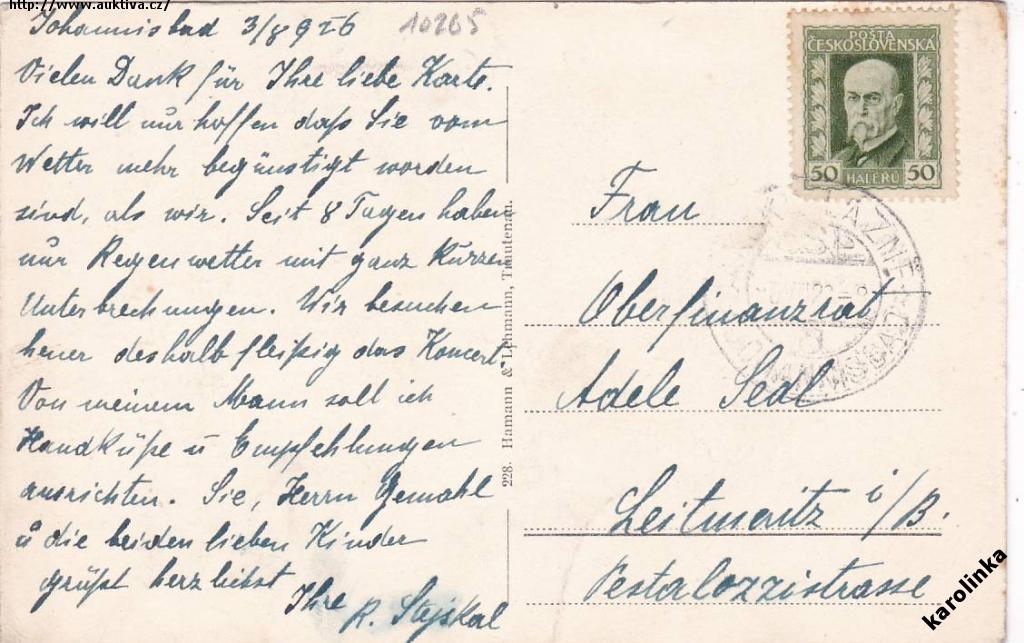 http://www.auktiva.cz/
Johannisbad 3/8 926
10265
Vielen Dank für Ihre liebe Karte.
Ich will nur hoffen daß Sie vom
Wetter mehr begünstigt worden
sind, als wir. Seit 8 Tagen haben
nur Regenwetter mit ganz kurzen
Unterbrechungen. Wir besuchen
heuer deshalb fleißig das Koncert.
Von meinem Mann soll ich
Handküße u Empfehlungen
ausrichten. Sie, Herrn Gemahl
u die beiden lieben Kinder
grüßt herzlichst
Ihre R. Stejskal
228. Hamann & Lehmann, Trautenau.
POŠTA
ČESKOSLOVENSKÁ
50 HALÉŘŮ 50
LÁZNĚ
JOHANNISBAD
Frau
Oberfinanzrat
Adele Sedl
Leitmeritz i/B.
Pestalozzistrasse
karolinka